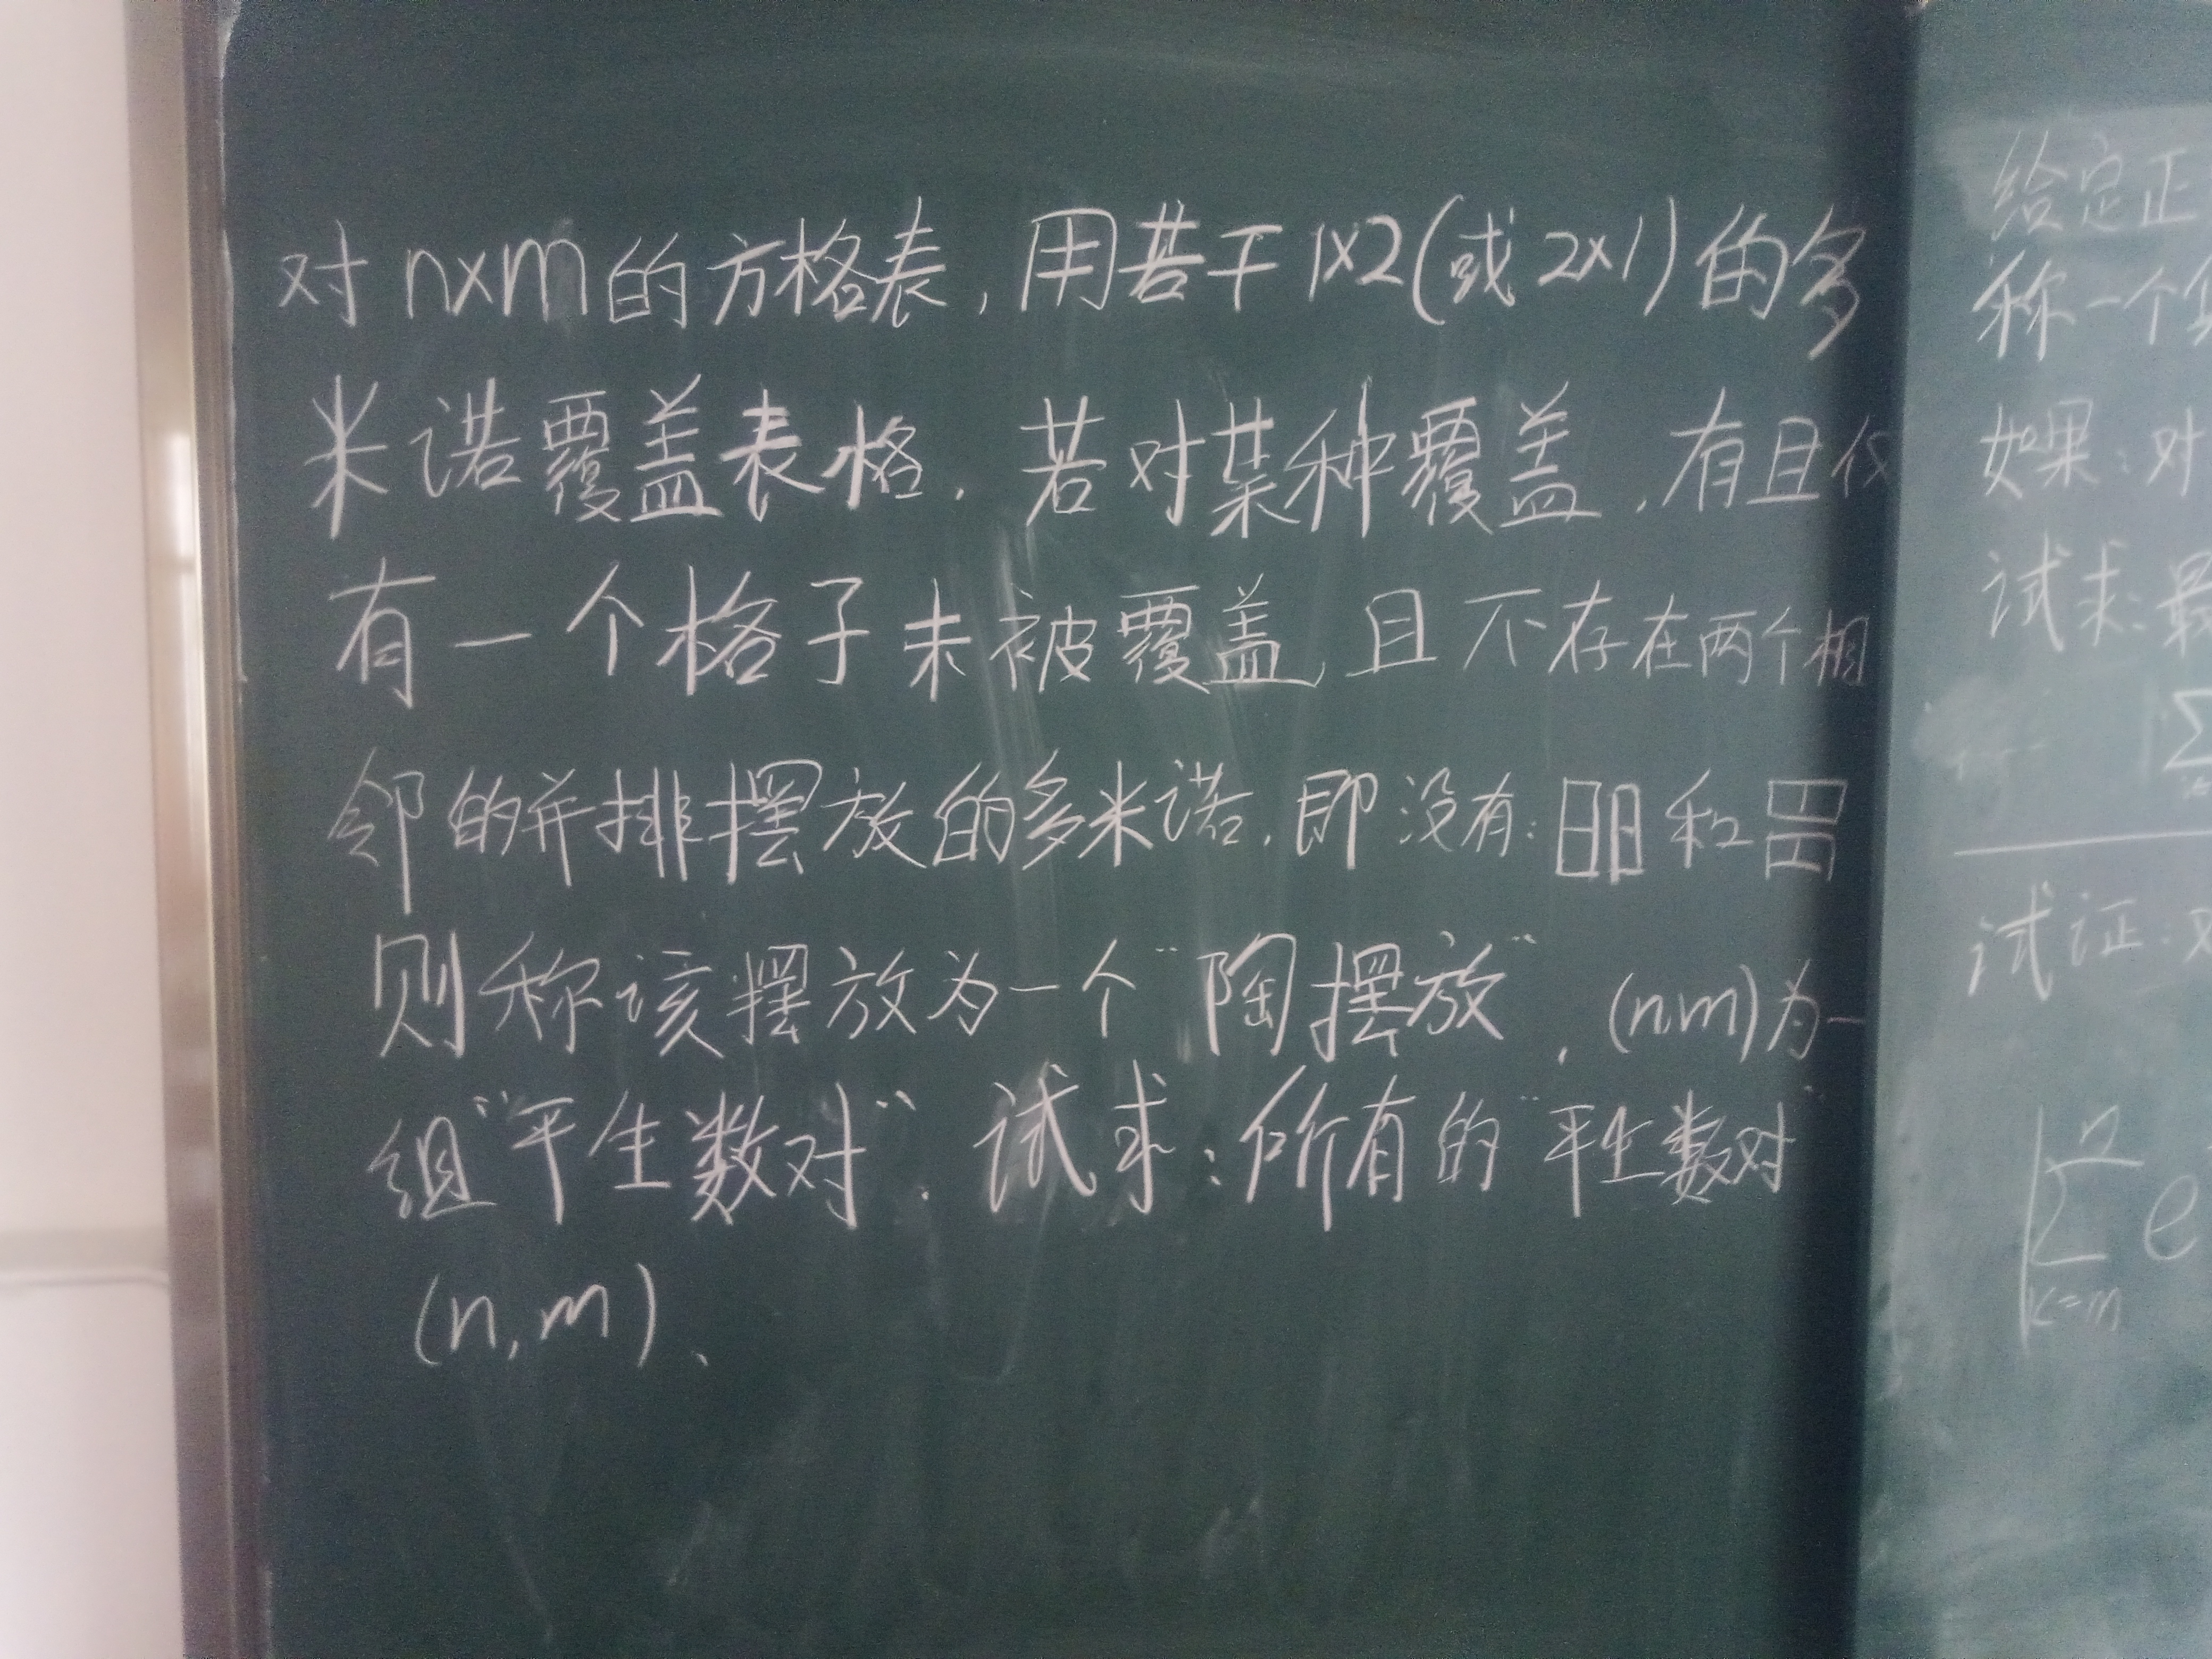 对n×m的方格表,用若干1×2(或2×1)的多
米诺覆盖表格.若对某种覆盖,有且仅
有一个格子未被覆盖,且不存在两个相
邻的并排摆放的多米诺.即没有: 和
则称该摆放为一个“陶摆放”.(n,m)为一
组“平生数对”.试求:所有的“平生数对”
(n,m).
给定正
称一个
如果:对
试求:最
∑
试证:对
|∑ e
n
k=m